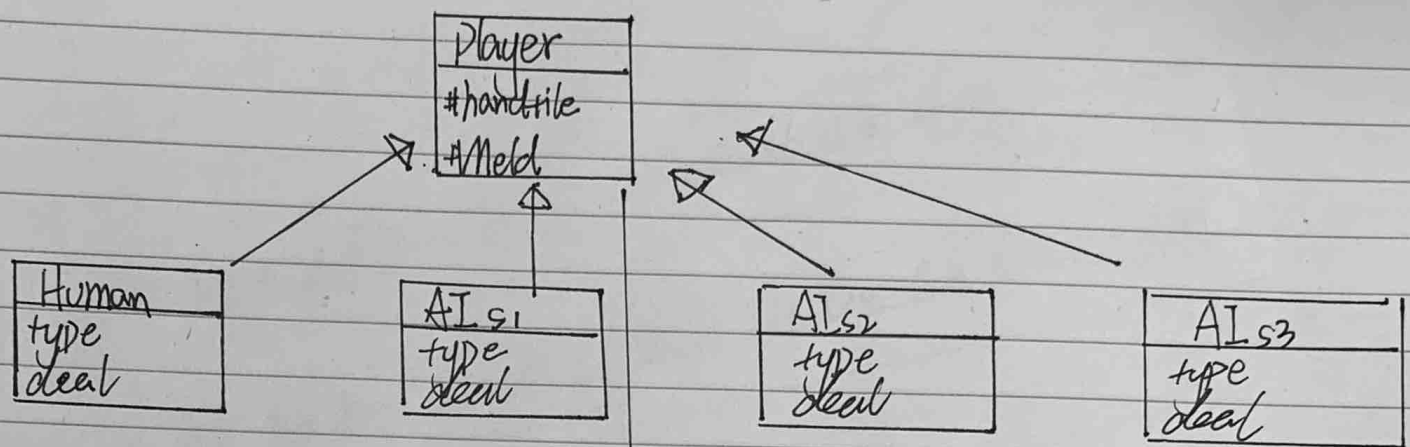 Player
#handtile
#Meld
Human
type
deal
AI s1
type
deal
AI s2
type
deal
AI s3
type
deal